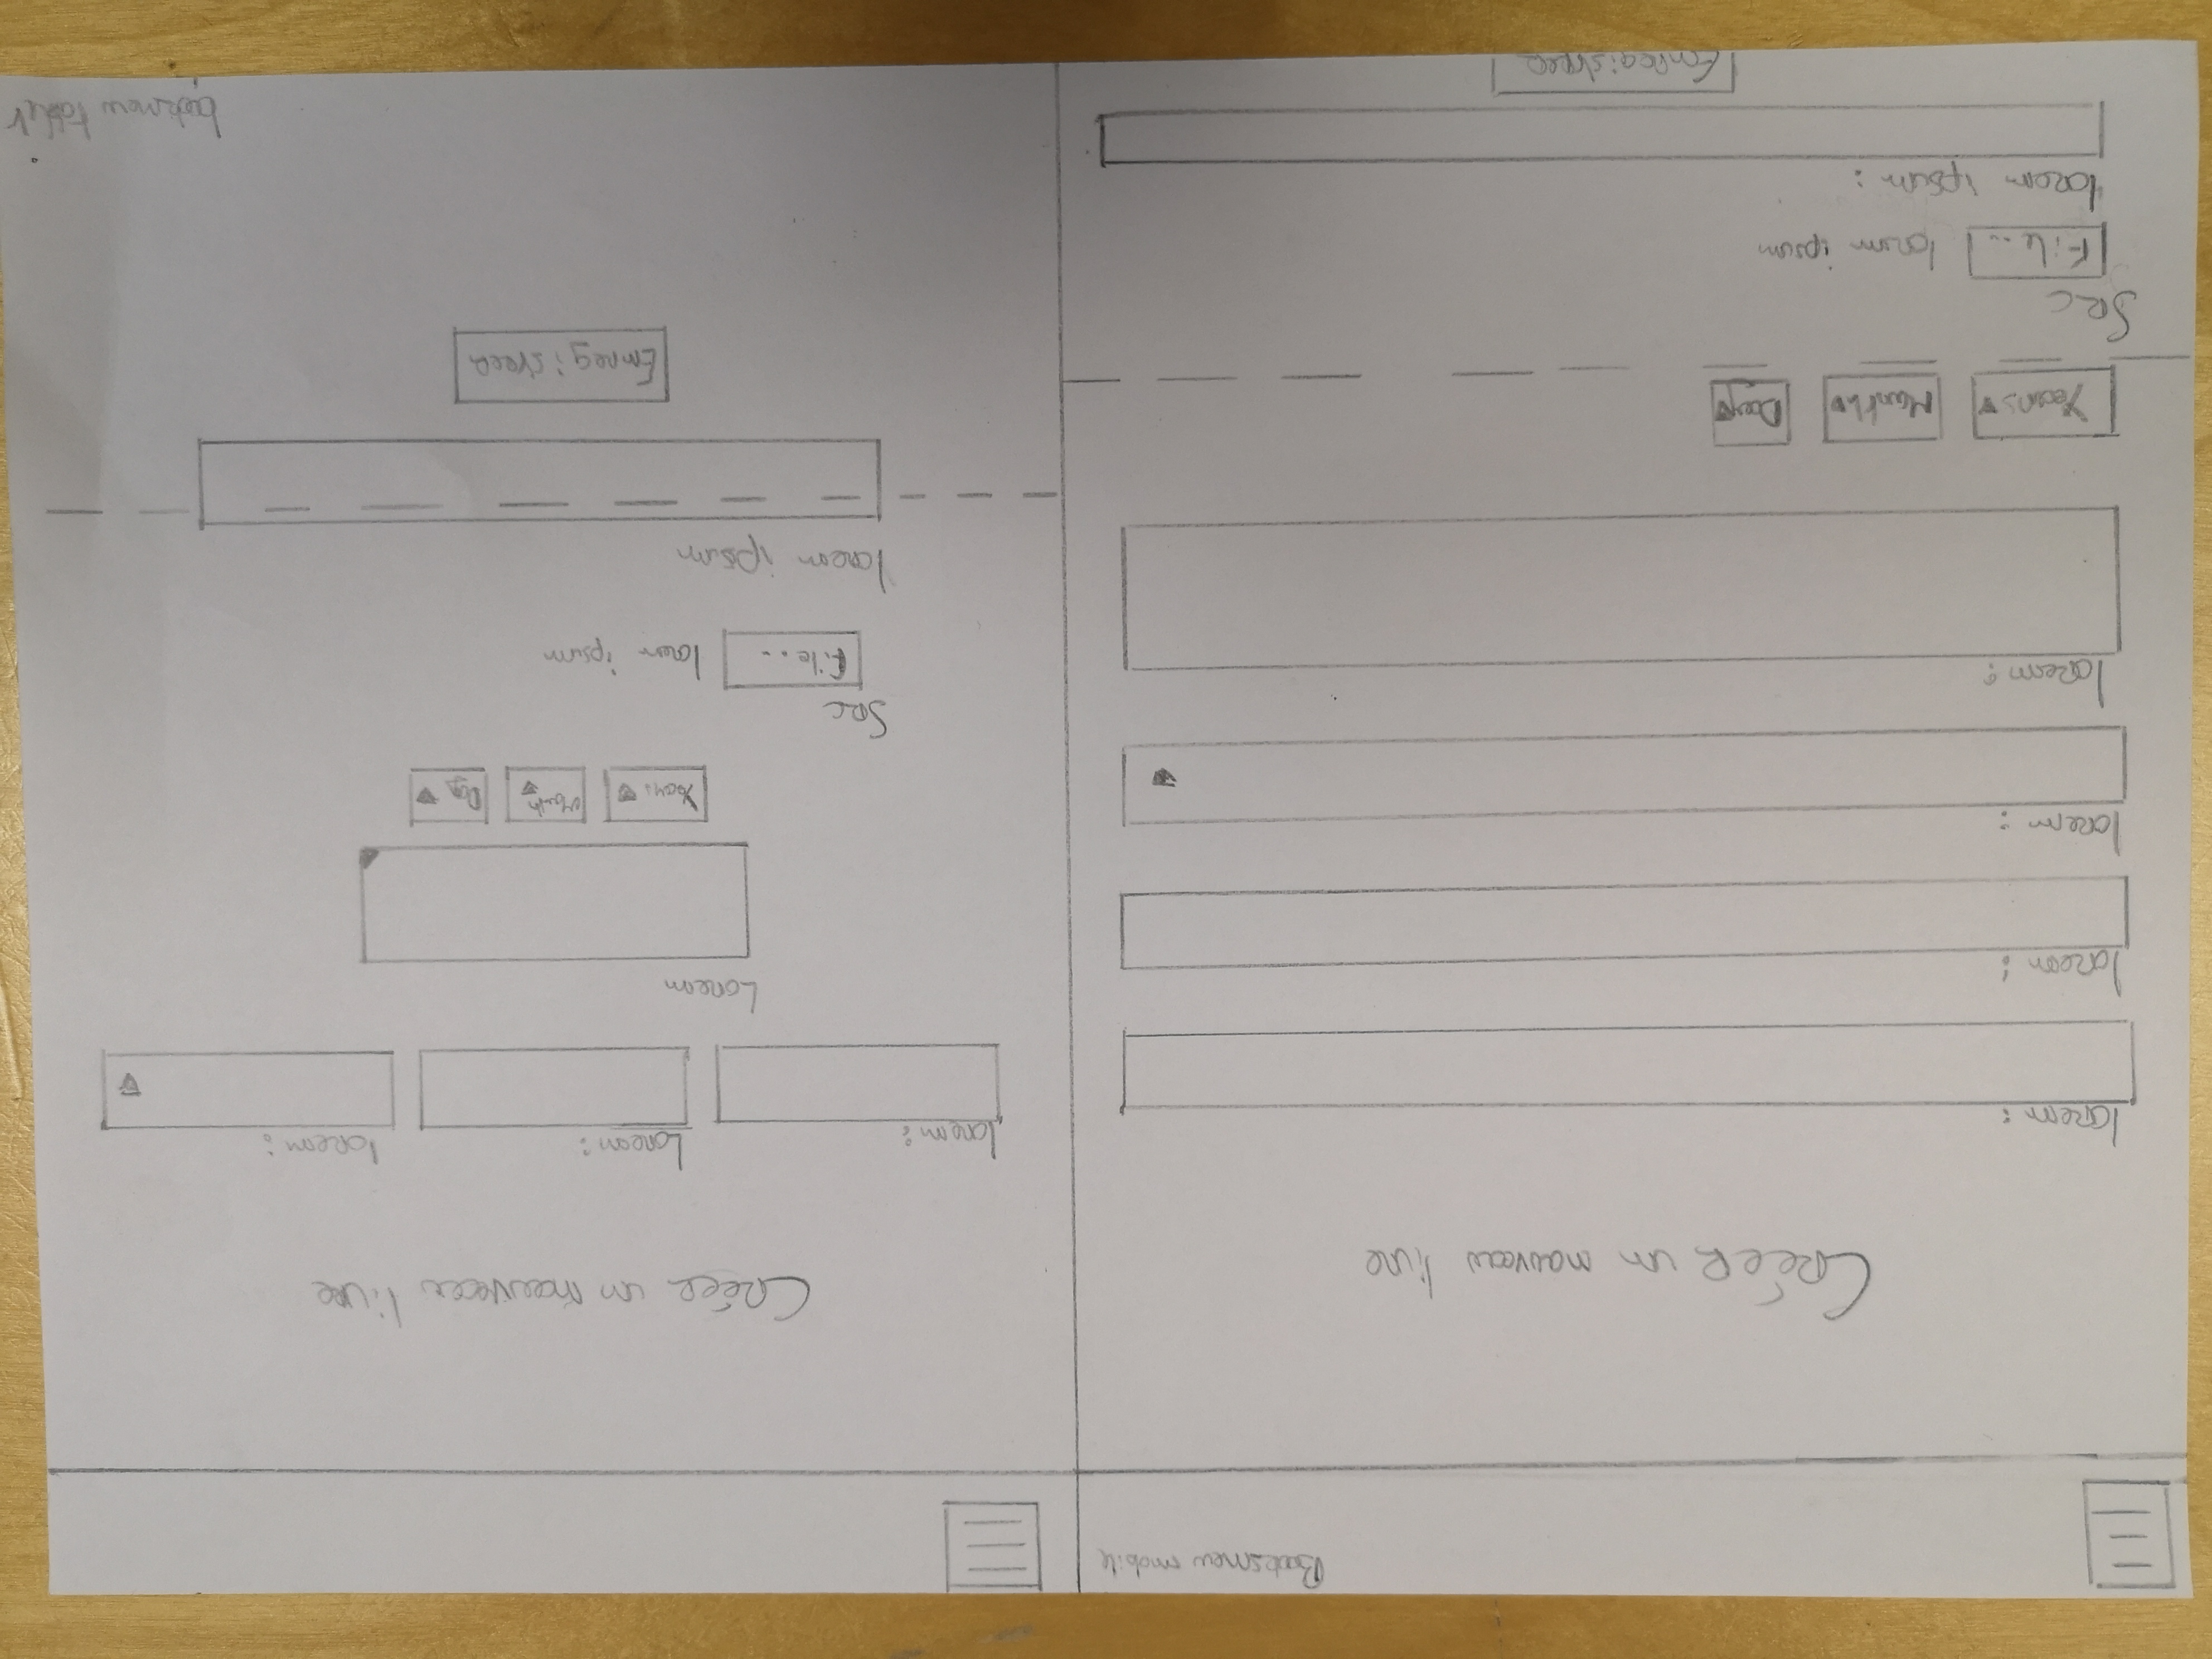 Booksnew mobile
Créer un nouveau livre
lorem :
lorem :
lorem :
lorem :
Years Month Day
Src
File... lorem ipsum
lorem ipsum :
Enregistrer
Créer un nouveau livre
lorem : Lorem : lorem :
Lorem
Years Month Day
Src
File... lorem ipsum
lorem ipsum
Enregistrer
booksnew tablet